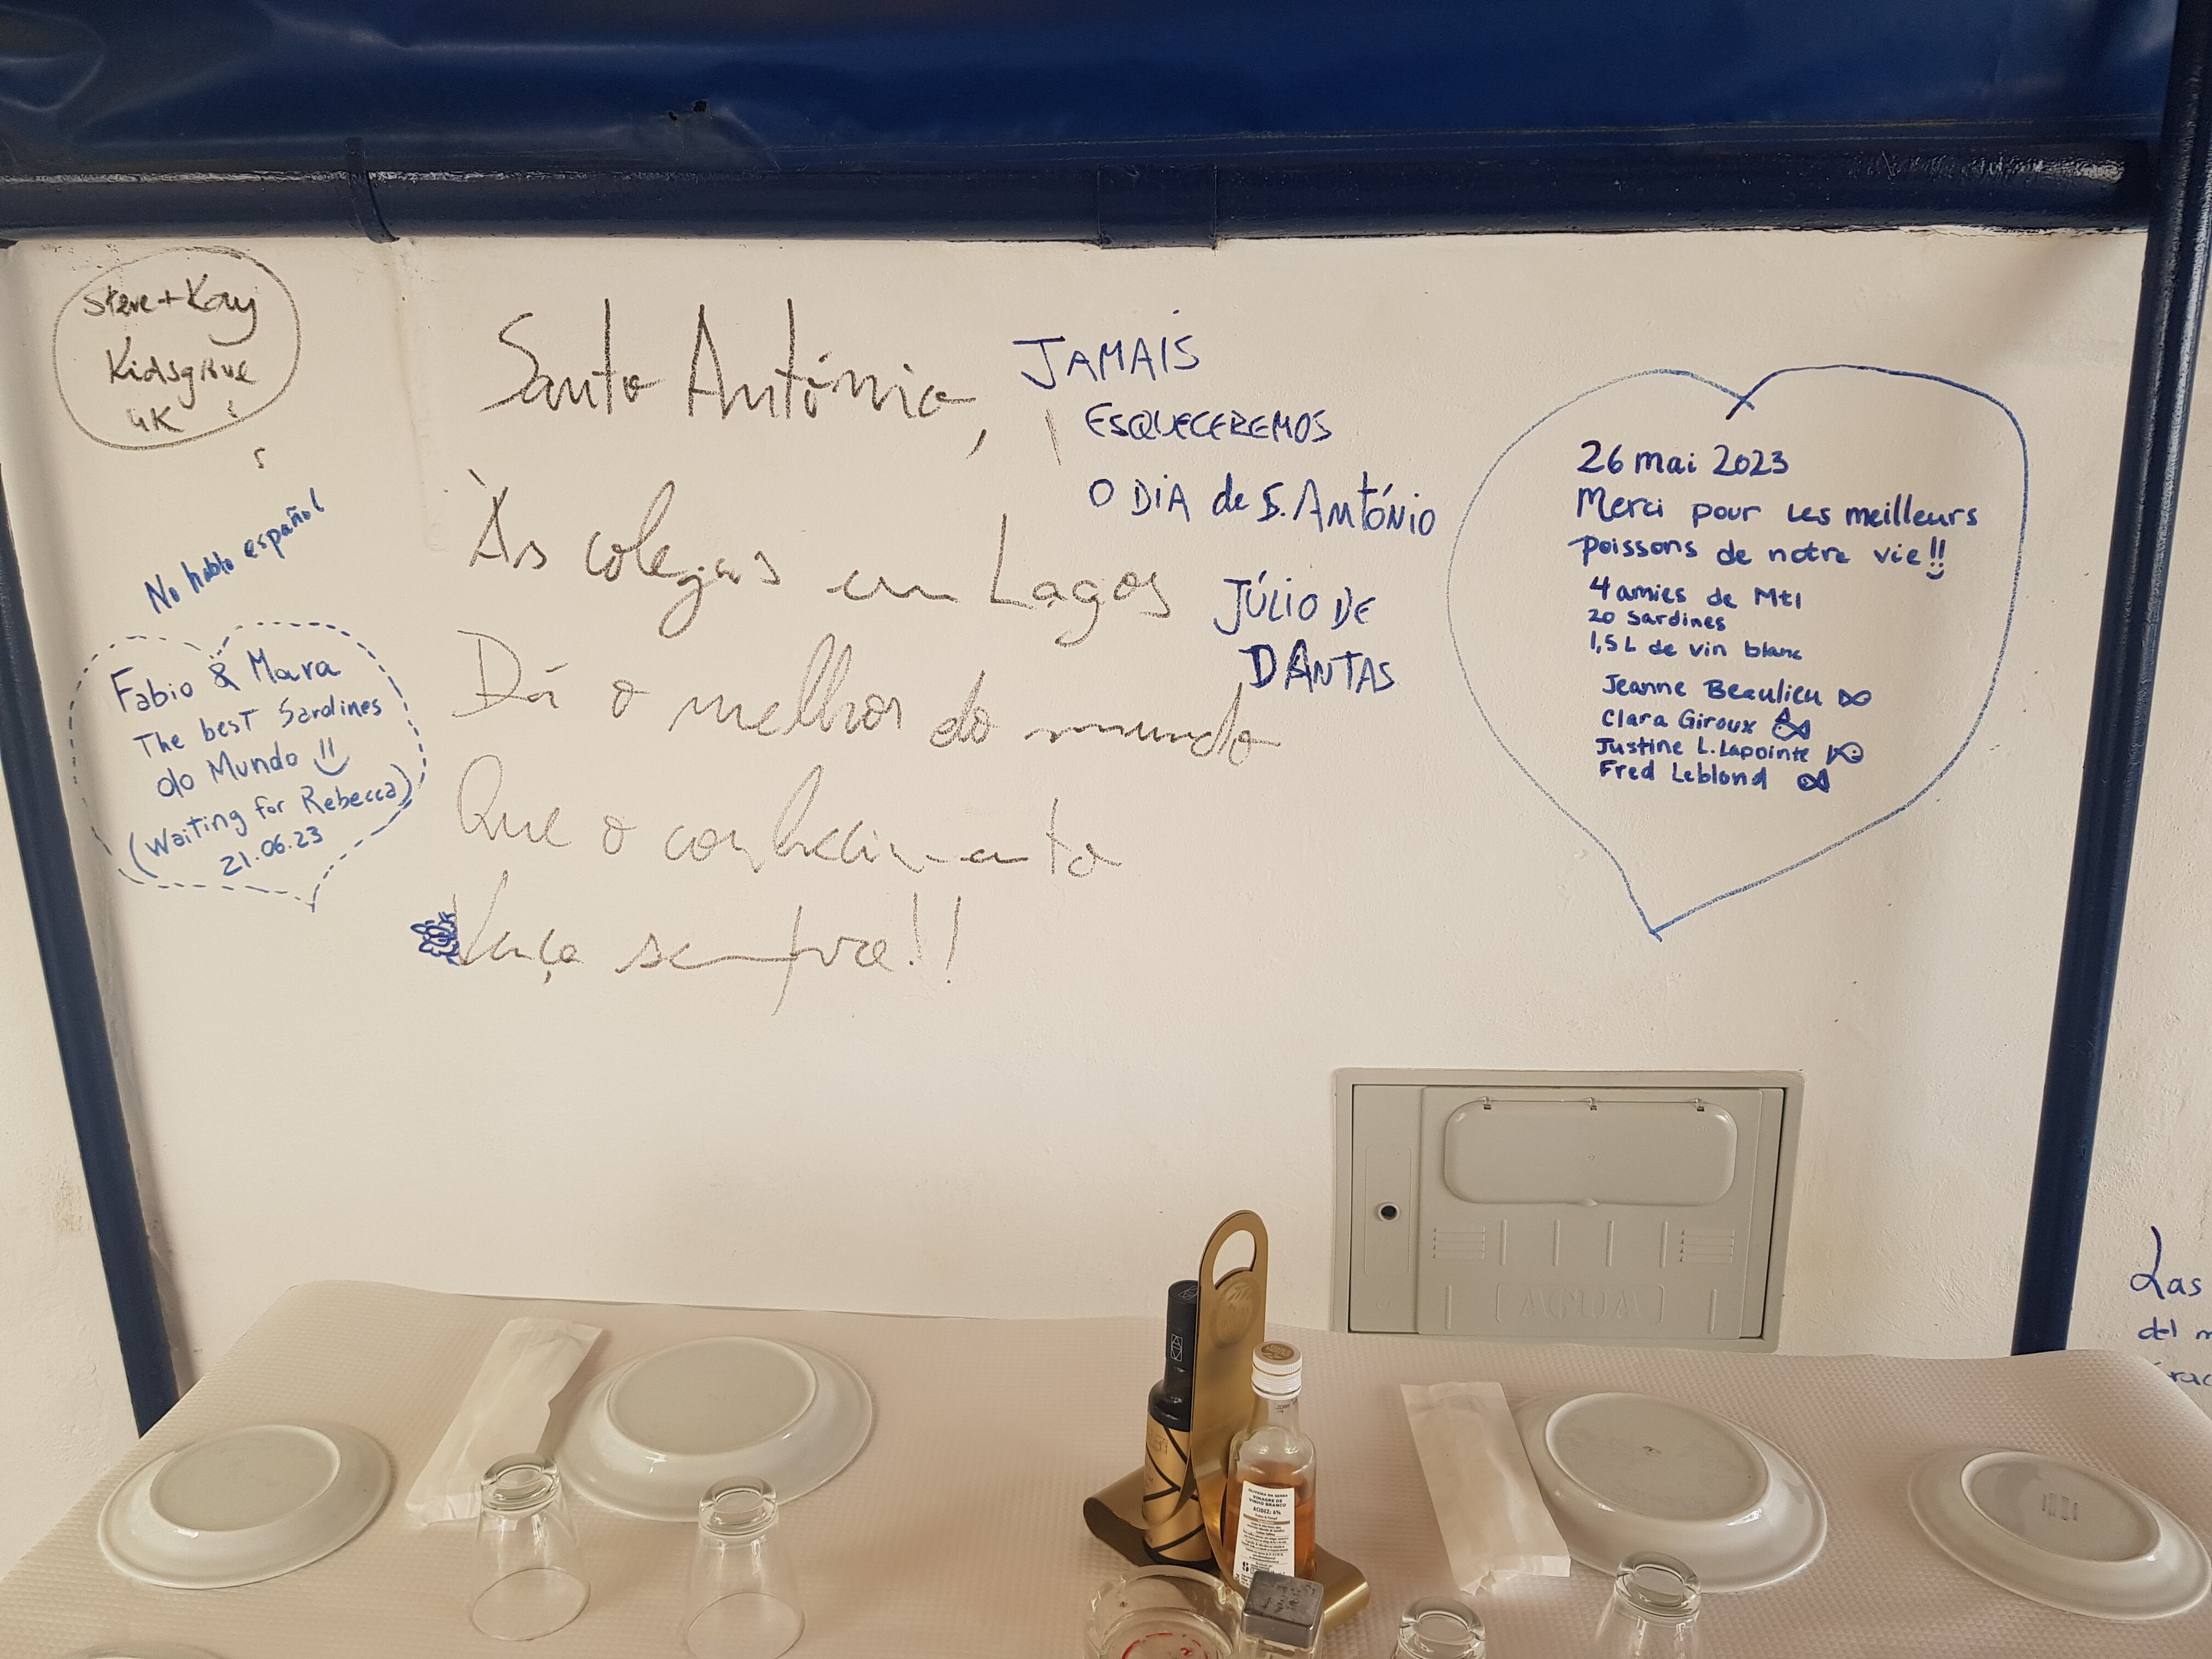 Steve + Kay
Kidsgrove
UK
No hablo español
Fabio & Mara
The best Sardines
do Mundo !!
(Waiting for Rebecca)
21.06.23
Santo António,
Às colegas em Lagos
Dá o melhor do mundo
Que o conhecimento
Vença sempre!!
JAMAIS
ESQUECEREMOS
O DIA de S. António
JÚLIO DE
DANTAS
26 mai 2023
Merci pour les meilleurs
poissons de notre vie!!
4 amies de Mtl
20 sardines
1,5 L de vin blanc
Jeanne Beaulieu
Clara Giroux
Justine L. Lapointe
Fred Leblond
AGUA
Las
del m
OLIVEIRA DA SERRA
VINAGRE DE
VINHO BRANCO
ACIDEZ: 6%